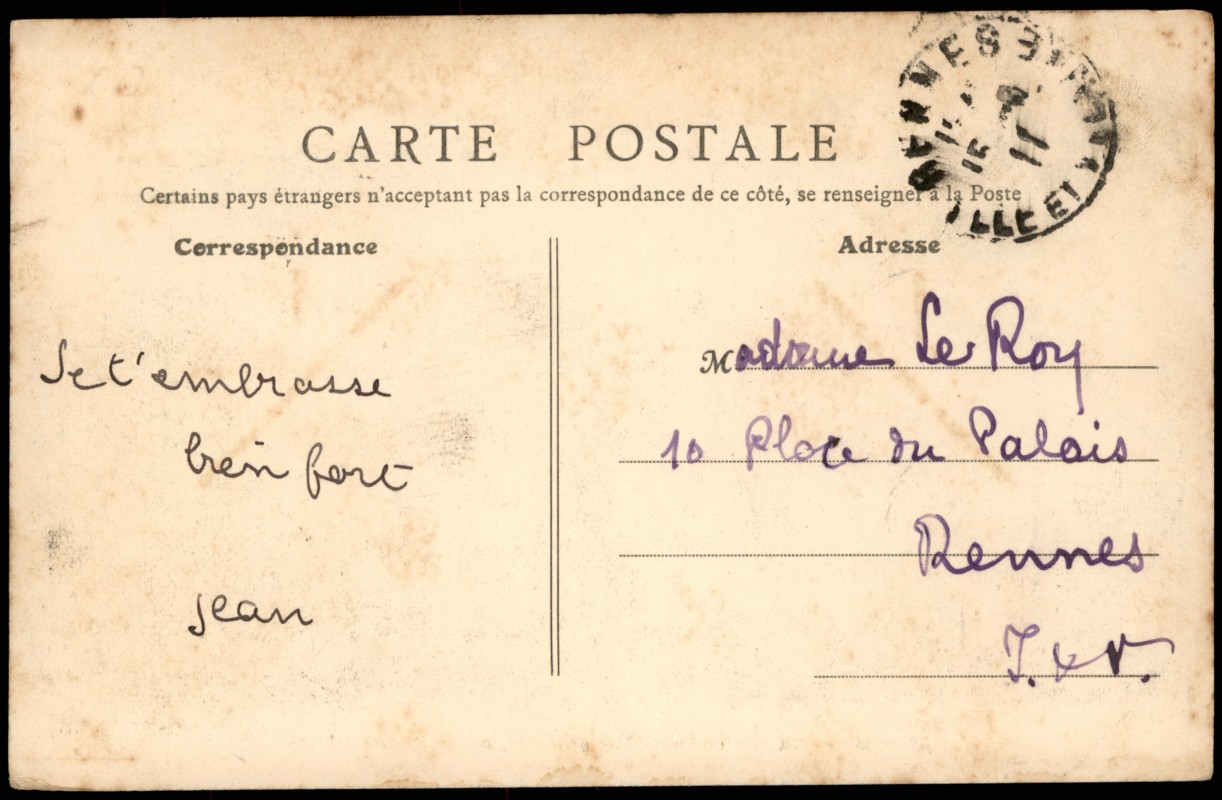 CARTE POSTALE
Certains pays étrangers n'acceptant pas la correspondance de ce côté, se renseigner à la Poste
Correspondance
Adresse
Je t'embrasse
bien fort
jean
Madame Le Roy
10 Place du Palais
Rennes
I. & V.
RENNES
ILLE ET
15
11